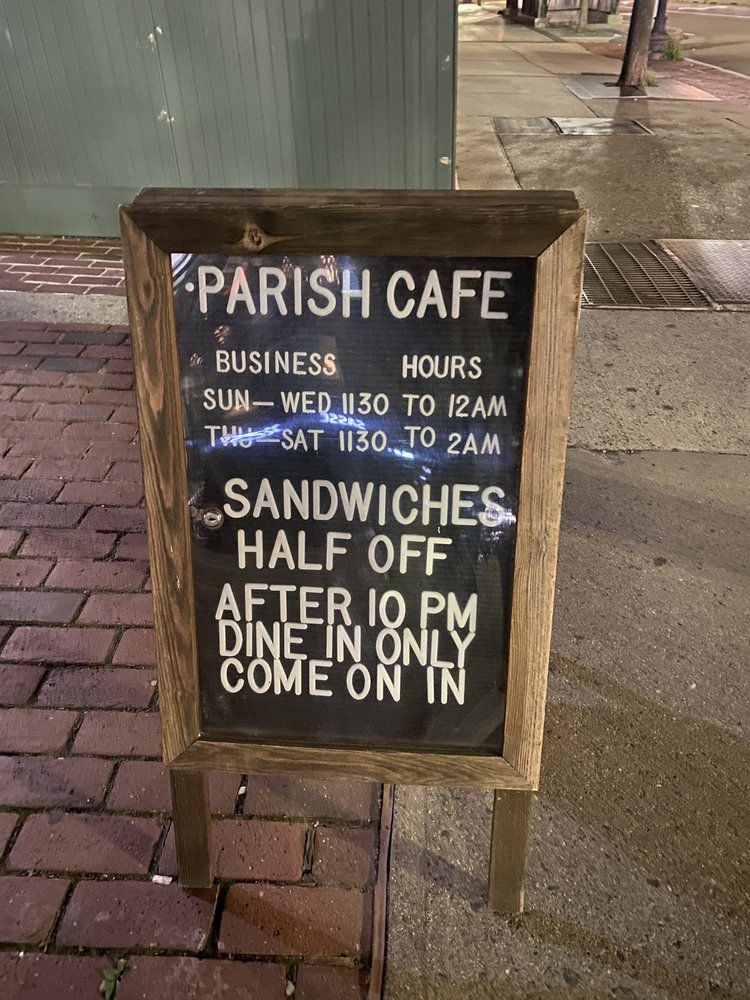 ·PARISH CAFE
BUSINESS HOURS
SUN—WED 1130 TO 12AM
THU—SAT 1130 TO 2AM
SANDWICHES
HALF OFF
AFTER 10 PM
DINE IN ONLY
COME ON IN